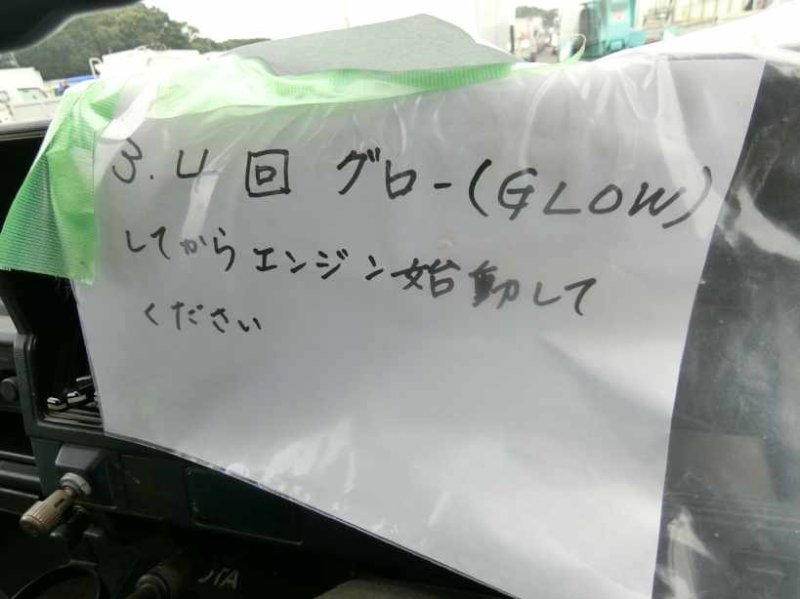 3.4回 グロー(GLOW)
してからエンジン始動して
ください